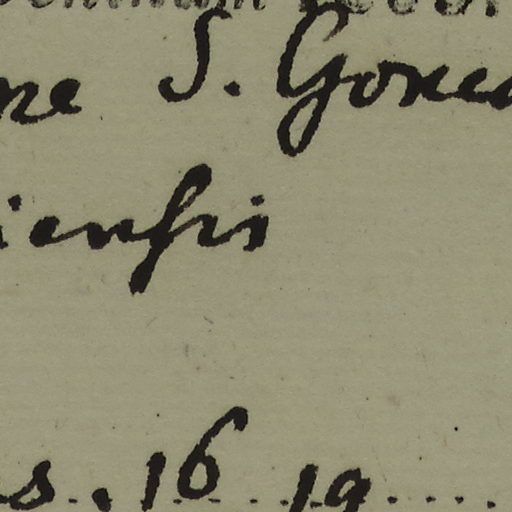 ne S. Gonca
iensis
s. 16 19